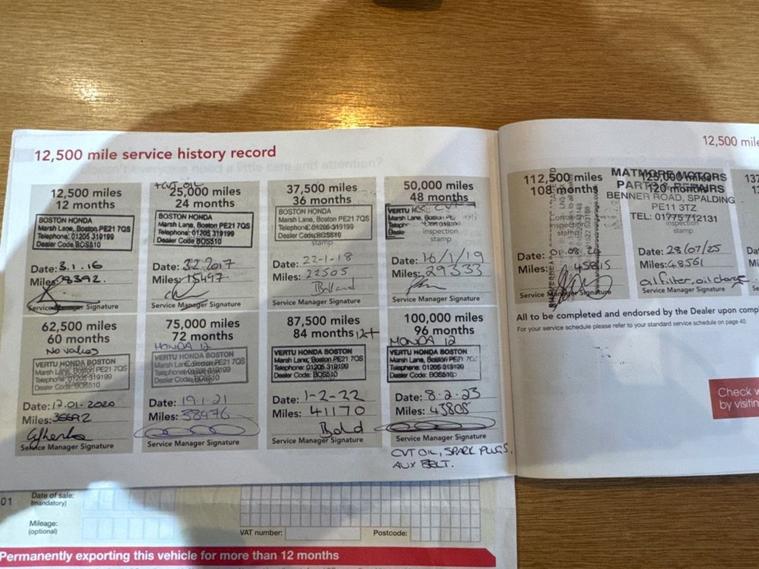 12,500 mile service history record
12,500 miles
12 months
BOSTON HONDA
Marsh Lane, Boston PE21 7QS
Telephone: 01205 319199
Dealer Code: BOS510
Date: 3.1.16
Miles: 8392.
Service Manager Signature
25,000 miles
24 months
BOSTON HONDA
Marsh Lane, Boston PE21 7QS
Telephone: 01205 319199
Dealer Code BOS510
Date: 3.2.2017
Miles: 15497
Service Manager Signature
37,500 miles
36 months
BOSTON HONDA
Marsh Lane, Boston PE21 7QS
Telephone: 01205 319199
Dealer Code: BOS510
stamp
Date: 22-1-18
Miles: 22505
Service Manager Signature
50,000 miles
48 months
VERTU
Marsh Lane, Boston
Telephone:
Dealer
inspection
stamp
Date: 16/1/19
Miles: 29333
Service Manager Signature
62,500 miles
60 months
No valves
VERTU HONDA BOSTON
Marsh Lane, Boston PE21 7QS
Telephone: 01205 319199
Dealer Code: BOS510
Date: 17-01-2020
Miles: 35692
Service Manager Signature
75,000 miles
72 months
HONDA 12
VERTU HONDA BOSTON
Marsh Lane, Boston PE21 7QS
Telephone: 01205 319199
Dealer Code: BOS510
Date: 19.1.21
Miles: 38476
Service Manager Signature
87,500 miles
84 months 12+
VERTU HONDA BOSTON
Marsh Lane, Boston PE21 7QS
Telephone: 01205 319199
Dealer Code: BOS510
Date: 1-2-22
Miles: 41170
Service Manager Signature
100,000 miles
96 months
HONDA 12
VERTU HONDA BOSTON
Marsh Lane, Boston PE21 7QS
Telephone: 01205 319199
Dealer Code: BOS510
Date: 8.2.23
Miles: 43808
Service Manager Signature
CVT OIL, SPARK PLUGS,
AUX BELT.
12,500 mile
112,500 miles
108 months
inspection
stamp
Date: 01.08.24
Miles: 45815
Service Manager Signature
125,000 miles
120 months
MATMORE MOTORS
BENNER ROAD, SPALDING
PE11 3TZ
TEL: 01775 712131
inspection
stamp
Date: 28/07/25
Miles: 48561
oil filter, oil change
Service Manager Signature
All to be completed and endorsed by the Dealer upon
For your service schedule please refer to your standard service schedule on page 40.
Check
by
01
Date of sale:
(mandatory)
Mileage:
(optional)
VAT number:
Postcode:
Permanently exporting this vehicle for more than 12 months